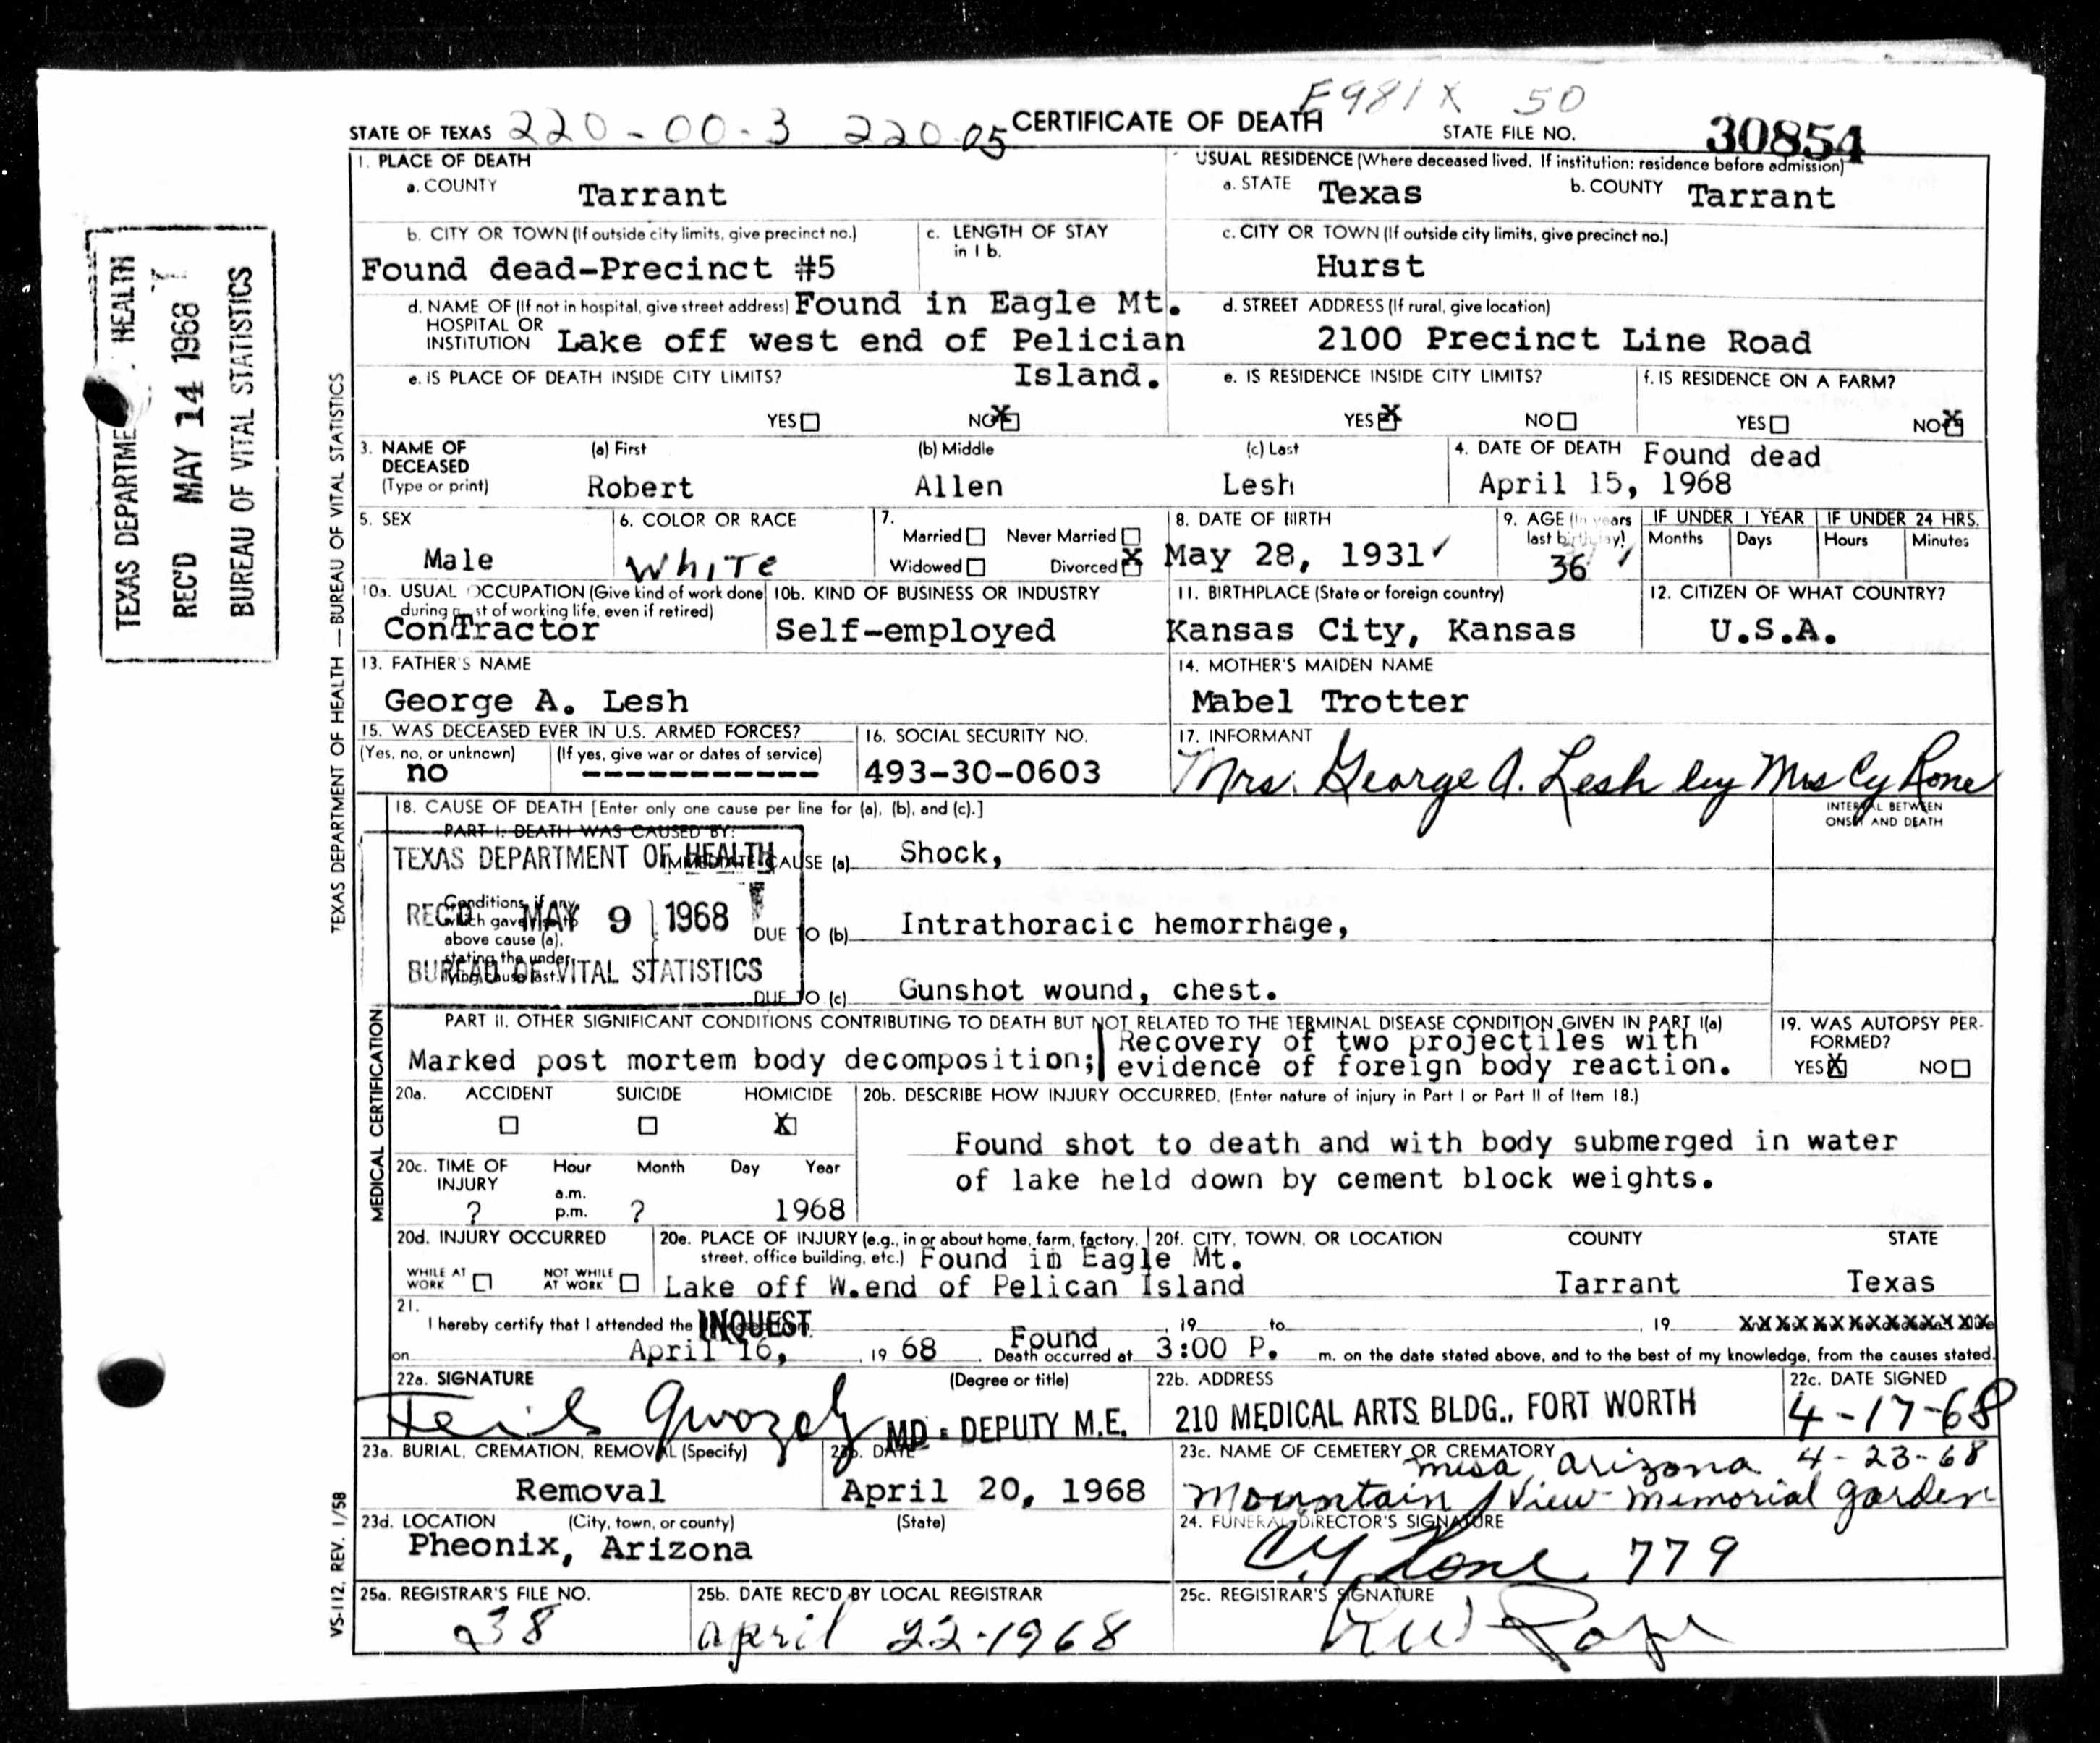 F981X 50
STATE OF TEXAS 220-00-3 220-05 CERTIFICATE OF DEATH STATE FILE NO. 30854
1. PLACE OF DEATH
a. COUNTY Tarrant
USUAL RESIDENCE (Where deceased lived. If institution: residence before admission)
a. STATE Texas b. COUNTY Tarrant
b. CITY OR TOWN (If outside city limits, give precinct no.)
Found dead-Precinct #5
c. LENGTH OF STAY
in 1 b.
c. CITY OR TOWN (If outside city limits, give precinct no.)
Hurst
d. NAME OF (If not in hospital, give street address) Found in Eagle Mt.
HOSPITAL OR
INSTITUTION Lake off west end of Pelician
Island.
d. STREET ADDRESS (If rural, give location)
2100 Precinct Line Road
e. IS PLACE OF DEATH INSIDE CITY LIMITS?
YES NO X
e. IS RESIDENCE INSIDE CITY LIMITS?
YES X NO
f. IS RESIDENCE ON A FARM?
YES NO X
3. NAME OF
DECEASED
(Type or print)
(a) First (b) Middle (c) Last
Robert Allen Lesh
4. DATE OF DEATH Found dead
April 15, 1968
5. SEX
Male
6. COLOR OR RACE
White
7.
Married Never Married
Widowed Divorced X
8. DATE OF BIRTH
May 28, 1931 ✓
9. AGE (In years
last birthday)
36 ✓
IF UNDER 1 YEAR
Months Days
IF UNDER 24 HRS.
Hours Minutes
10a. USUAL OCCUPATION (Give kind of work done
during most of working life, even if retired)
ConTractor
10b. KIND OF BUSINESS OR INDUSTRY
Self-employed
11. BIRTHPLACE (State or foreign country)
Kansas City, Kansas
12. CITIZEN OF WHAT COUNTRY?
U.S.A.
13. FATHER'S NAME
George A. Lesh
14. MOTHER'S MAIDEN NAME
Mabel Trotter
15. WAS DECEASED EVER IN U.S. ARMED FORCES?
(Yes, no, or unknown) (If yes, give war or dates of service)
no ------------
16. SOCIAL SECURITY NO.
493-30-0603
17. INFORMANT
Mrs. George A. Lesh by Mrs Cy Rone
18. CAUSE OF DEATH [Enter only one cause per line for (a), (b), and (c).]
INTERVAL BETWEEN
ONSET AND DEATH
PART I. DEATH WAS CAUSED BY:
IMMEDIATE CAUSE (a) Shock,
Conditions, if any,
which gave rise to
above cause (a),
stating the under-
lying cause last.
DUE TO (b) Intrathoracic hemorrhage,
DUE TO (c) Gunshot wound, chest.
TEXAS DEPARTMENT OF HEALTH
REC'D MAY 9 1968
BUREAU OF VITAL STATISTICS
PART II. OTHER SIGNIFICANT CONDITIONS CONTRIBUTING TO DEATH BUT NOT RELATED TO THE TERMINAL DISEASE CONDITION GIVEN IN PART I(a)
Marked post mortem body decomposition;
Recovery of two projectiles with
evidence of foreign body reaction.
19. WAS AUTOPSY PER-
FORMED?
YES X NO
20a. ACCIDENT SUICIDE HOMICIDE
X
20b. DESCRIBE HOW INJURY OCCURRED. (Enter nature of injury in Part I or Part II of Item 18.)
Found shot to death and with body submerged in water
of lake held down by cement block weights.
20c. TIME OF
INJURY
Hour Month Day Year
a.m.
p.m.
? ? 1968
20d. INJURY OCCURRED
WHILE AT
WORK
NOT WHILE
AT WORK
20e. PLACE OF INJURY (e.g., in or about home, farm, factory,
street, office building, etc.) Found in Eagle Mt.
Lake off W.end of Pelican Island
20f. CITY, TOWN, OR LOCATION COUNTY STATE
Tarrant Texas
21.
I hereby certify that I attended the INQUEST , 19 to , 19
on April 16, , 19 68 . Found
Death occurred at 3:00 P. m. on the date stated above, and to the best of my knowledge, from the causes stated.
22a. SIGNATURE (Degree or title)
Feliks Gwozdz MD - DEPUTY M.E.
22b. ADDRESS
210 MEDICAL ARTS BLDG., FORT WORTH
22c. DATE SIGNED
4-17-68
23a. BURIAL, CREMATION, REMOVAL (Specify)
Removal
23b. DATE
April 20, 1968
23c. NAME OF CEMETERY OR CREMATORY
mesa, arizona 4-23-68
Mountain View Memorial Garden
23d. LOCATION (City, town, or county) (State)
Pheonix, Arizona
24. FUNERAL DIRECTOR'S SIGNATURE
Cy Rone 779
25a. REGISTRAR'S FILE NO.
238
25b. DATE REC'D BY LOCAL REGISTRAR
april 22-1968
25c. REGISTRAR'S SIGNATURE
TEXAS DEPARTMENT OF HEALTH — BUREAU OF VITAL STATISTICS
MEDICAL CERTIFICATION
VS-112, REV. 1/58
TEXAS DEPARTMENT HEALTH
REC'D MAY 14 1968
BUREAU OF VITAL STATISTICS